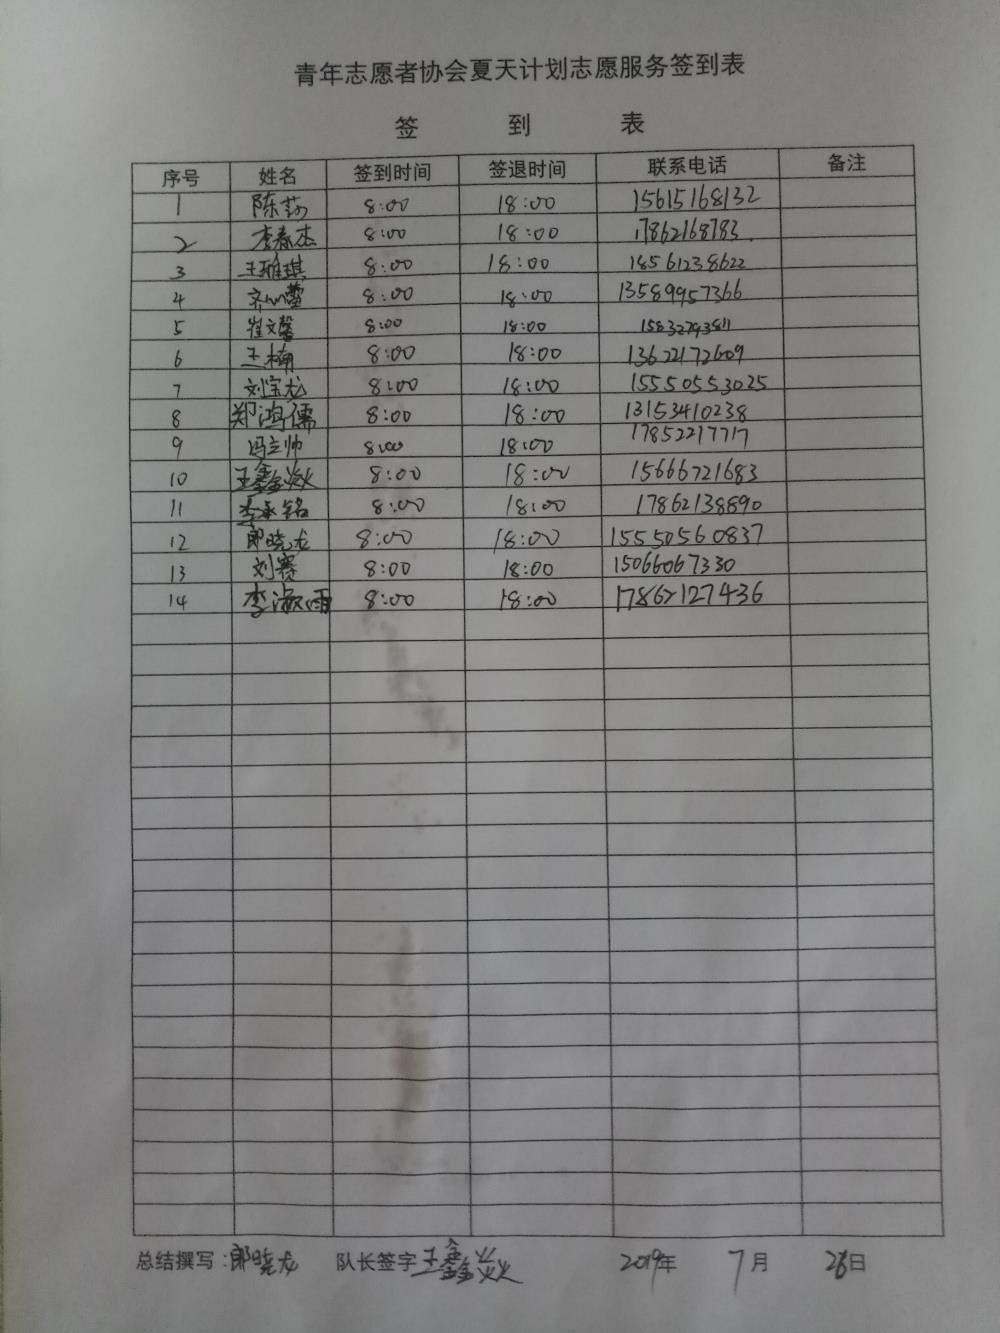 青年志愿者协会夏天计划志愿服务签到表
签 到 表
序号 姓名 签到时间 签退时间 联系电话 备注
1 陈莎 8:00 18:00 15615168132
2 李春杰 8:00 18:00 17862168783
3 王雅琪 8:00 18:00 18561238622
4 齐心蕾 8:00 18:00 13589957366
5 崔文馨 8:00 18:00 15832793811
6 王楠 8:00 18:00 13622172609
7 刘宝龙 8:00 18:00 15550553025
8 郑鸿儒 8:00 18:00 13153410238
9 冯立帅 8:00 18:00 17852217717
10 王鑫焱 8:00 18:00 15666721683
11 李承铭 8:00 18:00 17862138890
12 郎晓龙 8:00 18:00 15550560837
13 刘赛 8:00 18:00 15066067330
14 李淑雨 8:00 18:00 17862127436
总结撰写:郎晓龙 队长签字 王鑫焱 2019年 7月 26日